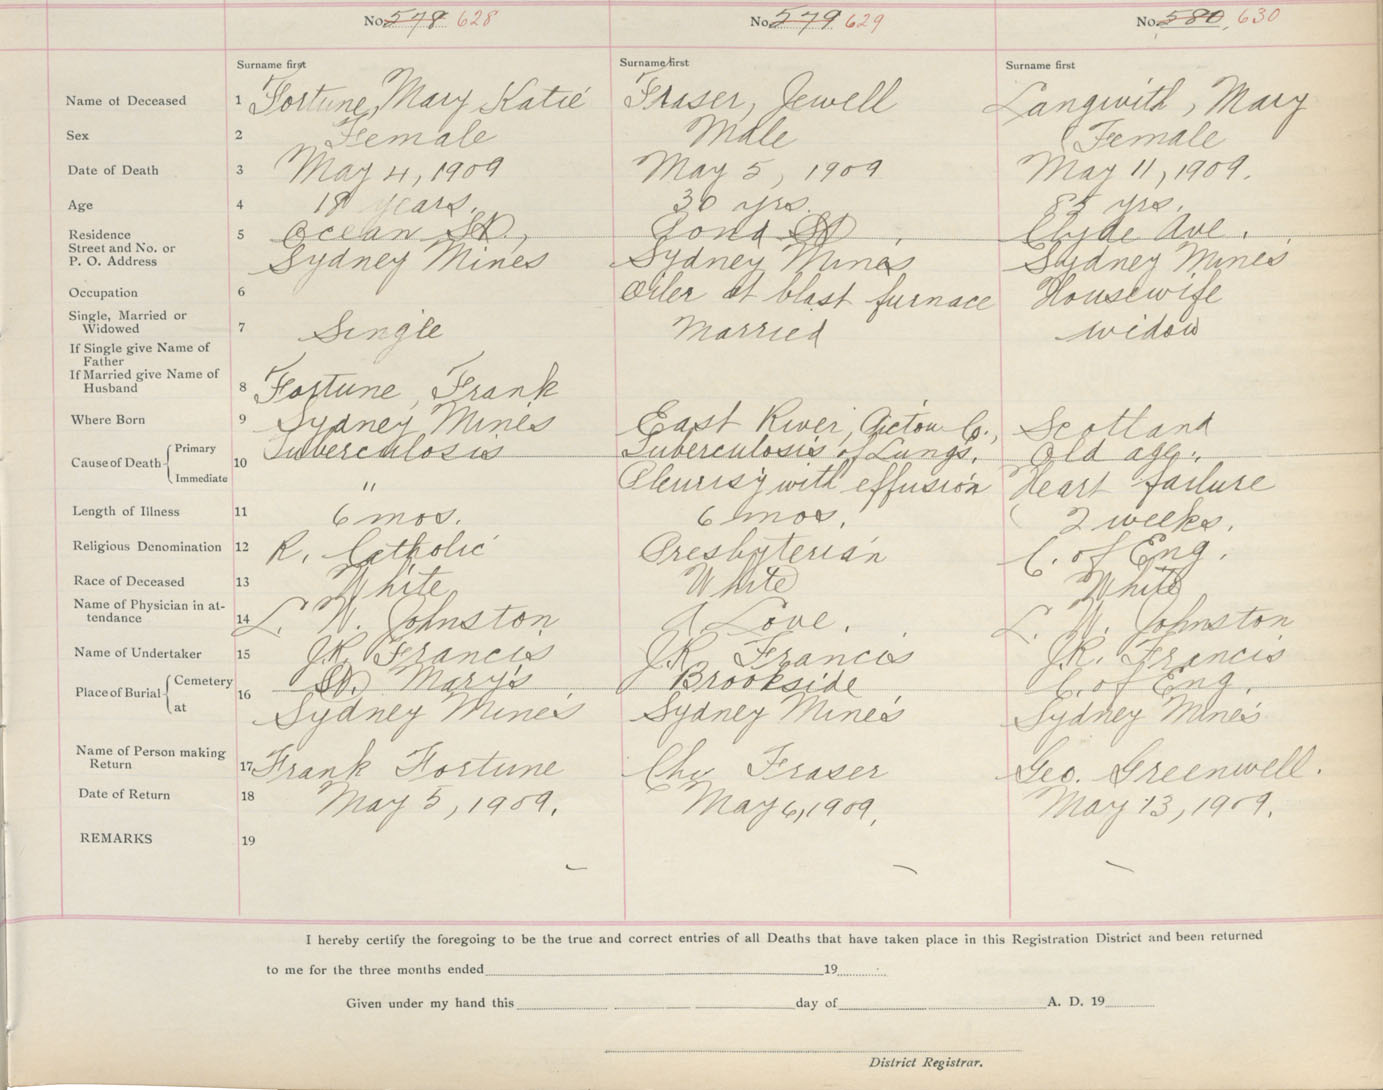 No. 578 628 No. 579 629 No. 580 630
Surname first Surname first Surname first
Name of Deceased 1 Fortune, Mary Katie Fraser, Jewell Langwith, Mary
Sex 2 Female Male Female
Date of Death 3 May 4, 1909 May 5, 1909 May 11, 1909.
Age 4 18 years. 30 yrs. 85 yrs.
Residence 5 Ocean St., Pond St, Clyde Ave.,
Street and No. or
P. O. Address Sydney Mines Sydney Mines Sydney Mines
Occupation 6 Oiler at blast furnace Housewife
Single, Married or
Widowed 7 Single Married widow
If Single give Name of
Father
If Married give Name of
Husband 8 Fortune, Frank
Where Born 9 Sydney Mines East River, Pictou Co., Scotland
Cause of Death Primary 10 Tuberculosis Tuberculosis of Lungs. Old age.
Immediate " Pleurisy with effusion Heart failure
Length of Illness 11 6 mos. 6 mos. 2 weeks.
Religious Denomination 12 R. Catholic Presbyterian C. of Eng.
Race of Deceased 13 White White White
Name of Physician in at-
tendance 14 L. W. Johnston A. Love. L. W. Johnston
Name of Undertaker 15 J.R. Francis J.R. Francis J.R. Francis
Place of Burial Cemetery 16 St. Mary's Brookside C. of Eng.
at Sydney Mines Sydney Mines Sydney Mines
Name of Person making
Return 17 Frank Fortune Fraser Geo. Greenwell.
Date of Return 18 May 5, 1909. May 6, 1909. May 13, 1909.
REMARKS 19
I hereby certify the foregoing to be the true and correct entries of all Deaths that have taken place in this Registration District and been returned
to me for the three months ended 19
Given under my hand this day of A. D. 19
District Registrar.